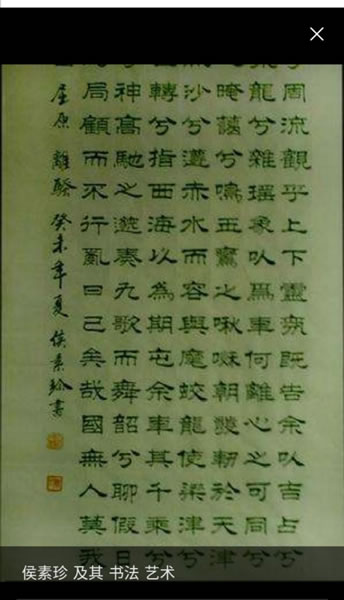 兮周流觀乎上下靈氛既告余㠯吉占兮
飛龍兮雜瑤象㠯爲車何離心之可同兮
晻藹兮鳴玉鸞之啾啾朝發軔於天津
流沙兮遵赤水而容與麾蛟龍使梁津兮
轉兮指西海以為期屯余車其千乘兮
兮神高馳之邈奏九歌而舞韶兮聊假日
局顧而不行亂曰已矣哉國無人莫我
屈原 離騷 癸未年夏 侯素珍書
侯素珍 及其 书法 艺术